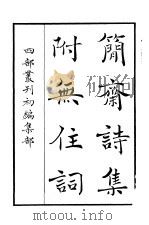 簡齋詩集
附無住詞
四部叢刊初編集部
mtoou.info